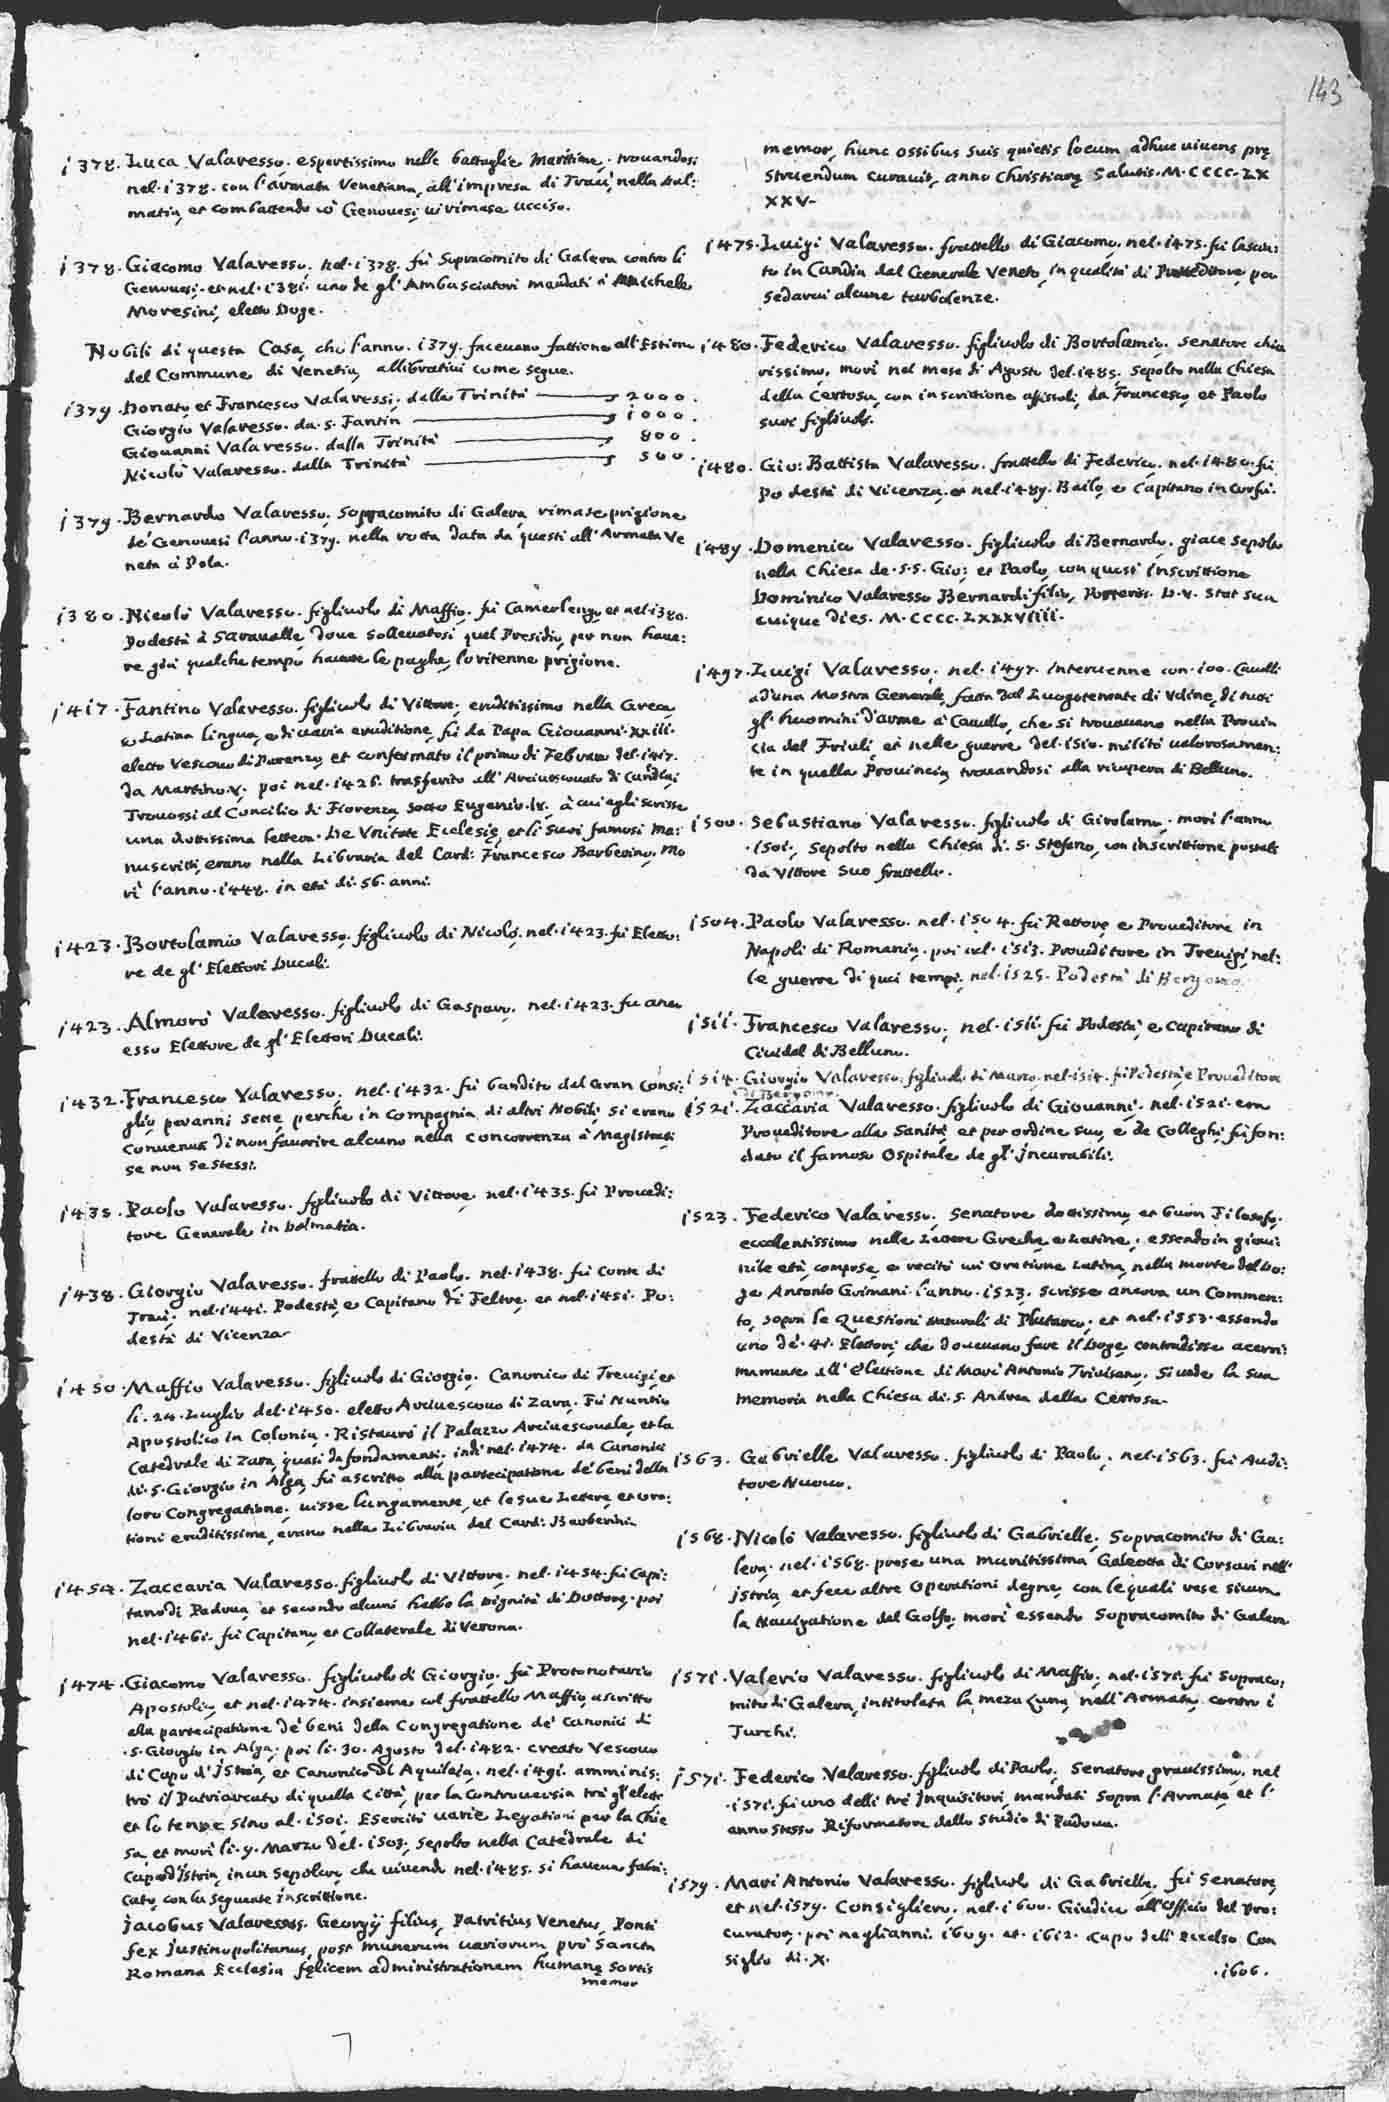 143
1378. Luca Valaresso. espertissimo nelle battaglie Marittime. trouandosi
nel. 1378. con l'armata Venetiana, all'impresa di Traù, nella Dal:
matia, et combattendo cò Genouesi, ui rimase ucciso.
1378. Giacomo Valaresso, nel. 1378. fù Sopracomito di Galera contro li
Genouesi. et nel. 1381. uno de gl'Ambasciatori mandati à Michele
Moresini, eletto Doge.
Nobili di questa Casa, che l'anno. 1379. faceuano fattione all'Estimo
del Commune di Venetia, allibrati come segue.
1379. Donato, et Francesco Valaressi. dalla Trinità 2000.
Giorgio Valaresso. da. S. Fantin 1000.
Giouanni Valaresso. dalla Trinità 800.
Nicolò Valaresso. dalla Trinità 500.
1379. Bernardo Valaresso. Sopracomito di Galera, rimase prigione
dè Genouesi l'anno. 1379. nella rotta data da questi all'Armata Ve
neta à Pola.
1380. Nicolò Valaresso. figliuolo di Maffio. fù Camerlengo, et nel. 1380.
Podestà à Sarauallle, doue solleuatosi quel Presidio, per non haue:
re già qualche tempo hauute le paghe, lo ritenne prigione.
1417. Fantino Valaresso. figliuolo di Vittore, eruditissimo nella Greca,
e Latina lingua, e di uaria eruditione, fù da Papa Giouanni. XXIII.
eletto Vescouo di Parenzo, et confermato il primo di Febraro del. 1417.
da Martino. V. poi nel. 1426. trasferito all'Arciuescouato di Candia,
Trouossi al Concilio di Fiorenza, sotto Eugenio. IV. à cui egli scrisse
una dottissima lettera. De Vnitate Ecclesię, et li suoi famosi Ma:
nuscritti, erano nella Libraria del Card: Francesco Barberino. Mo
rì l'anno. 1448. in età di. 56. anni.
1423. Bortolamio Valaresso. figliuolo di Nicolò. nel. 1423. fù Eletto:
re de gl'Elettori Ducali.
1423. Almorò Valaresso. figliuolo di Gasparo. nel. 1423. fu anco
esso Elettore de gl'Elettori Ducali.
1432. Francesco Valaresso. nel. 1432. fù bandito dal Gran Consi:
glio per anni sette, perche in compagnia di altri Nobili, si erano
conuenuti di non fauorire alcuno nella concorrenza à Magistrati,
se non se stessi.
1435. Paolo Valaresso. figliuolo di Vittore, nel. 1435. fù Proueди:
tore Generale in Dalmatia.
1438. Giorgio Valaresso. fratello di Paolo. nel. 1438. fù Conte di
Traù. nel. 1441. Podestà, e Capitano di Feltre, et nel. 1451. Po:
destà di Vicenza.
1450. Maffio Valaresso. figliuolo di Giorgio. Canonico di Treuigi, et
li. 24. Luglio del. 1450. eletto Arciuescouo di Zara. Fù Nuntio
Apostolico in Colonia. Ristaurò il Palazzo Arciuescouale, et la
Catedrale di Zara, quasi da fondamenti. indi nel. 1474. da Canonici
di. S. Giorgio in Alga, fù ascritto alla partecipatione dè beni della
loro Congregatione. uisse lungamente, et le sue Lettere, et ora:
tioni eruditissime, erano nella Libraria del Card: Barberini.
1454. Zaccaria Valaresso. figliuolo di Vittore. nel. 1454. fù Capi:
tano di Padoua, et secondo alcuni hebbe la dignità di Dottore. poi
nel. 1461. fù Capitano, et Collaterale di Verona.
1474. Giacomo Valaresso. figliuolo di Giorgio. fù Protonotario
Apostolico, et nel. 1474. insieme col fratello Maffio, ascritto
alla partecipatione dè beni della Congregatione dè Canonici di
. S. Giorgio in Alga. poi li. 30. Agosto del. 1482. creato Vescouo
di Capo d'Istria, et Canonico di Aquileia. nel. 1491. amminis:
trò il Patriarcato di quella Città, per la controuersia trà gl'eletti
et lo tenne sino al. 1501. Esercitò uarie Legationi per la Chie
sa, et morì li. 9. Marzo del. 1503. sepolto nella Catedrale di
Capo d'Istria, in un sepolcro, che uiuendo nel. 1485. si haueua fabri:
cato, con la seguente inscrittione.
Jacobus Valaressus. Georgij filius, Patritius Venetus, Ponti
fex Justinopolitanus, post munerum uariorum pro Sancta
Romana Ecclesia fęlicem administrationem humanę sortis
memor
memor, hunc ossibus suis quietis locum adhuc uiuens prę
struendum curauit, anno Christianę Salutis. M. CCCC. LX
XXV.
1475. Luigi Valaresso. fratello di Giacomo, nel. 1475. fù lascia:
to in Candia dal Generale Veneto, in qualità di Proueditore, per
sedarui alcune turbolenze.
1480. Federico Valaresso. figliuolo di Bortolamio. Senatore chia
rissimo. morì nel mese di Agosto del. 1485. sepolto nella Chiesa
della Certosa, con inscrittione affissoli, da Francesco, et Paolo
suoi figliuoli.
1480. Gio: Battista Valaresso. fratello di Federico. nel. 1480. fù
Podestà di Vicenza, et nel. 1489. Bailo, e Capitano in Corfù.
1489. Domenico Valaresso. figliuolo di Bernardo. giace sepolto
nella Chiesa de. S.S. Gio: et Paolo, con questa inscrittione
Dominico Valaresso Bernardi filio, Posteris. D. V. Stat sua
cuique dies. M. CCCC. LXXXVIIII.
1497. Luigi Valaresso, nel. 1497. interuenne con. 100. Caualli
ad una Mostra Generale, fatta dal Luogotenente di Vdine, di tutti
gl'huomini d'arme à Cauallo, che si trouauano nella Prouin
cia del Friuli, et nelle guerre del. 1510. militò ualorosamen:
te in quella Prouincia, trouandosi alla ricupera di Belluno.
1500. Sebastiano Valaresso. figliuolo di Girolamo. morì l'anno
. 1501., sepolto nella Chiesa di. S. Stefano, con inscrittione postale
da Vittore suo fratello.
1504. Paolo Valaresso. nel. 1504. fù Rettore, e Proueditore in
Napoli di Romania. poi nel. 1513. Proueditore in Treuigi, nel:
le guerre di quei tempi. nel. 1525. Podestà di Bergomo.
1511. Francesco Valaresso, nel. 1511. fù Podestà, e Capitano di
Ciuidal di Belluno.
1514. Giorgio Valaresso. figliuolo di Marco. nel. 1514. fù Podestà, e Proueditore
di Bergomo.
1521. Zaccaria Valaresso. figliuolo di Giouanni. nel. 1521. era
Proueditore alla Sanità, et per ordine suo, e dè Colleghi fù fon:
dato il famoso Ospitale de gl'Incurabili.
1523. Federico Valaresso. Senatore dottissimo, et buon Filosofo.
eccellentissimo nelle Lettere Greche, e Latine. essendo in gioui:
nile età, compose, e recitò un'oratione Latina, nella morte del Do:
ge Antonio Grimani l'anno. 1523. scrisse ancora un Commen:
to, sopra le questioni naturali di Plutarco. et nel. 1553. essendo
uno dè. 41. Elettori, che doueuano fare il Doge, contradisse acerri:
mamente all'elettione di Marc'Antonio Triuisano. Si uede la sua
memoria nella Chiesa di. S. Andrea della Certosa.
1563. Gabrielle Valaresso. figliuolo di Paolo. nel. 1563. fù Audi:
tore Nuouo.
1568. Nicolò Valaresso. figliuolo di Gabrielle. Sopracomito di Ga:
lera. nel. 1568. prese una munitissima Galeotta di Corsari nell'
Istria, et fece altre operationi degne, con le quali rese sicura
la nauigatione del Golfo, morì essendo Sopracomito di Galera
1571. Valerio Valaresso. figliuolo di Maffio. nel. 1571. fù Sopraco:
mito di Galera, intitolata la meza Luna, nell'Armata, contro i
Turchi.
1571. Federico Valaresso. figliuolo di Paolo, Senatore grauissimo, nel
. 1571. fù uno delli tre Inquisitori, mandati sopra l'Armata, et l'
anno stesso Riformatore dello Studio di Padoua.
1579. Marc'Antonio Valaresso. figliuolo di Gabrielle. fù Senatore,
et nel. 1579. Consigliero, nel. 1600. Giudice all'Officio del Pro:
curator. poi negl'anni. 1609. et. 1612. Capo dell'Eccelso Con
siglio di. X.
. 1606.